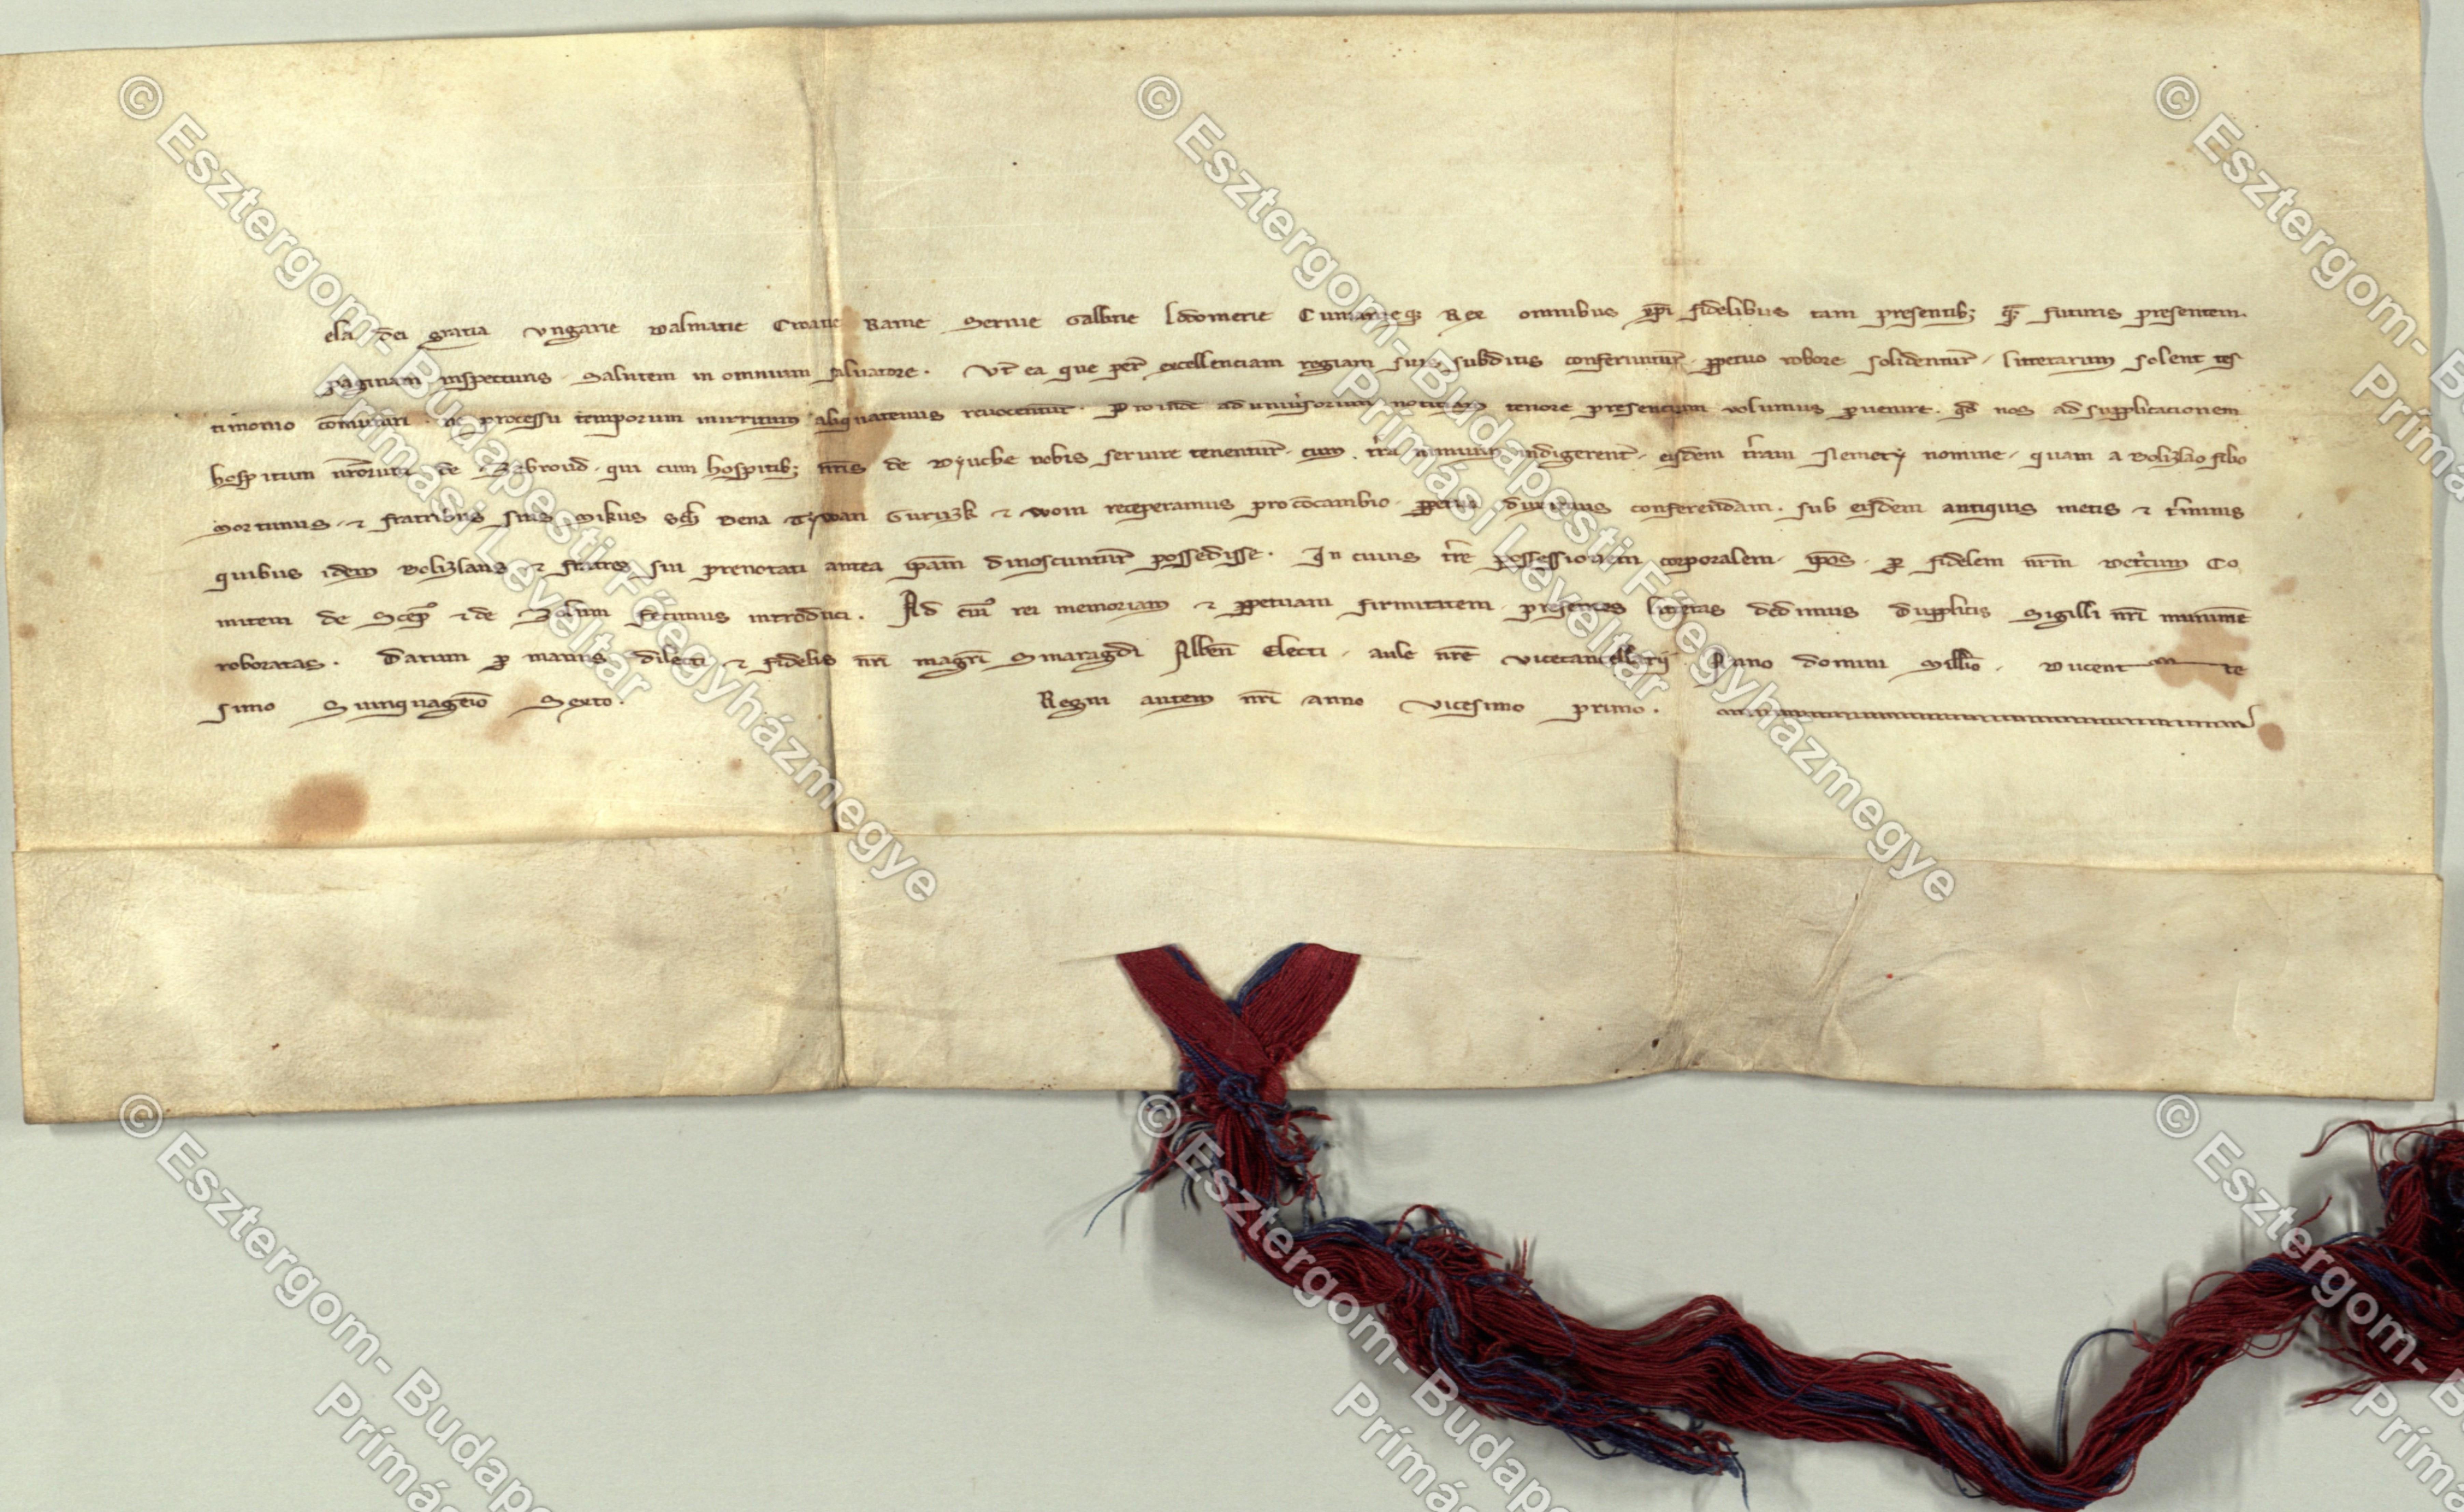 ela dei gratia Vngarie Dalmatie Croatie Rame Seruie Gallicie Lodomerie Cumanieq; Rex omnibus xpi fidelibus tam presentib; q̃ futuris presentem
paginam inspecturis Salutem in omnium saluatore. Vt ea que per excellenciam regiam suis subditis conferuntur ppetuo robore solidentur litterarum solent tes
timonio cōmuniri ne processu temporum in irritum aliquatenus reuocentur. Proinde ad uniuersorum noticiam tenore presencium volumus puenire. qd nos ad supplicacionem
hospitum nrorum de qui cum hospitib; nris de nobis seruire tenentur cum tra nimium indigerent eisdem tram Nemety nomine quam a filio
Mortunus & fratribus suis Mikus Bena Guruzk & receperamus pro cōcambio ppetuo duximus conferendam. sub eisdem antiquis metis & tminis
quibus idem & fratres sui prenotati antea ipam dinoscuntur possedisse. In cuius tre possessionem corporalem ipos p fidelem nrm Co
mitem de Scep & de fecimus introduci. Ad cui rei memoriam & ppetuam firmitatem presentes litteras dedimus dupplicis Sigilli nri munimine
roboratas. Datum p manus dilecti & fidelis nri magri Smaragdi Alben Electi aule nre vicecancellarij Anno domini Millio. Ducente
simo Quinquageio Sexto. Regni autem nri anno vicesimo primo.
© Esztergom- Budapesti Főegyházmegye
Prímási Levéltár
© Esztergom- Budapesti Főegyházmegye
Prímási Levéltár
© Esztergom- B
Príma
© Esztergom- Budape
Prímás
© Esztergom- Budape
Prímás
© Esztergom- B
Príma